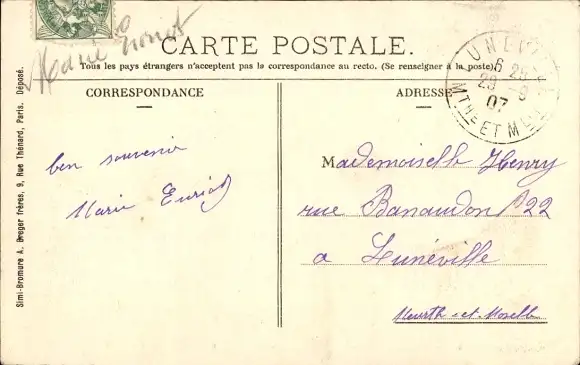 CARTE POSTALE.
Tous les pays étrangers n'acceptent pas la correspondance au recto. (Se renseigner à la poste).
CORRESPONDANCE
ADRESSE
bon souvenir
Marie
Mademoiselle Henry
rue Banaudon 22
a Lunéville
Meurthe-et-Moselle
Simi-Bromure A. Breger frères, 9, Rue Thénard, Paris. Déposé.
Marie
6
29 - 9
07